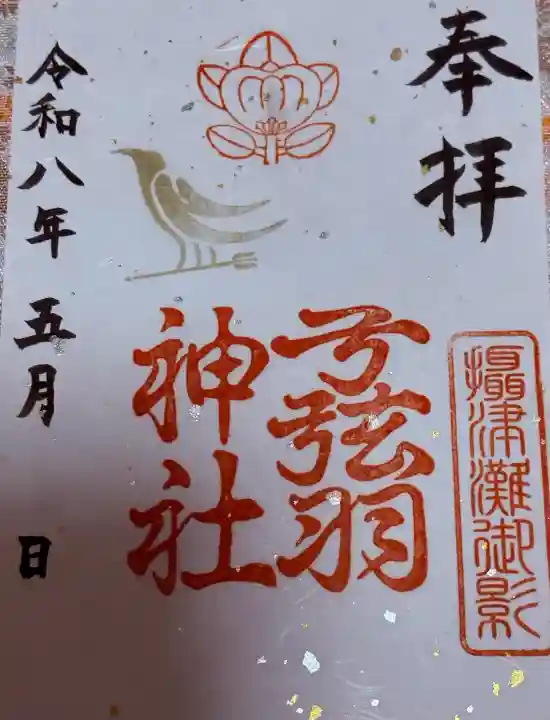 奉拝
攝津灘御影
弓弦羽
神社
令和八年 五月 日